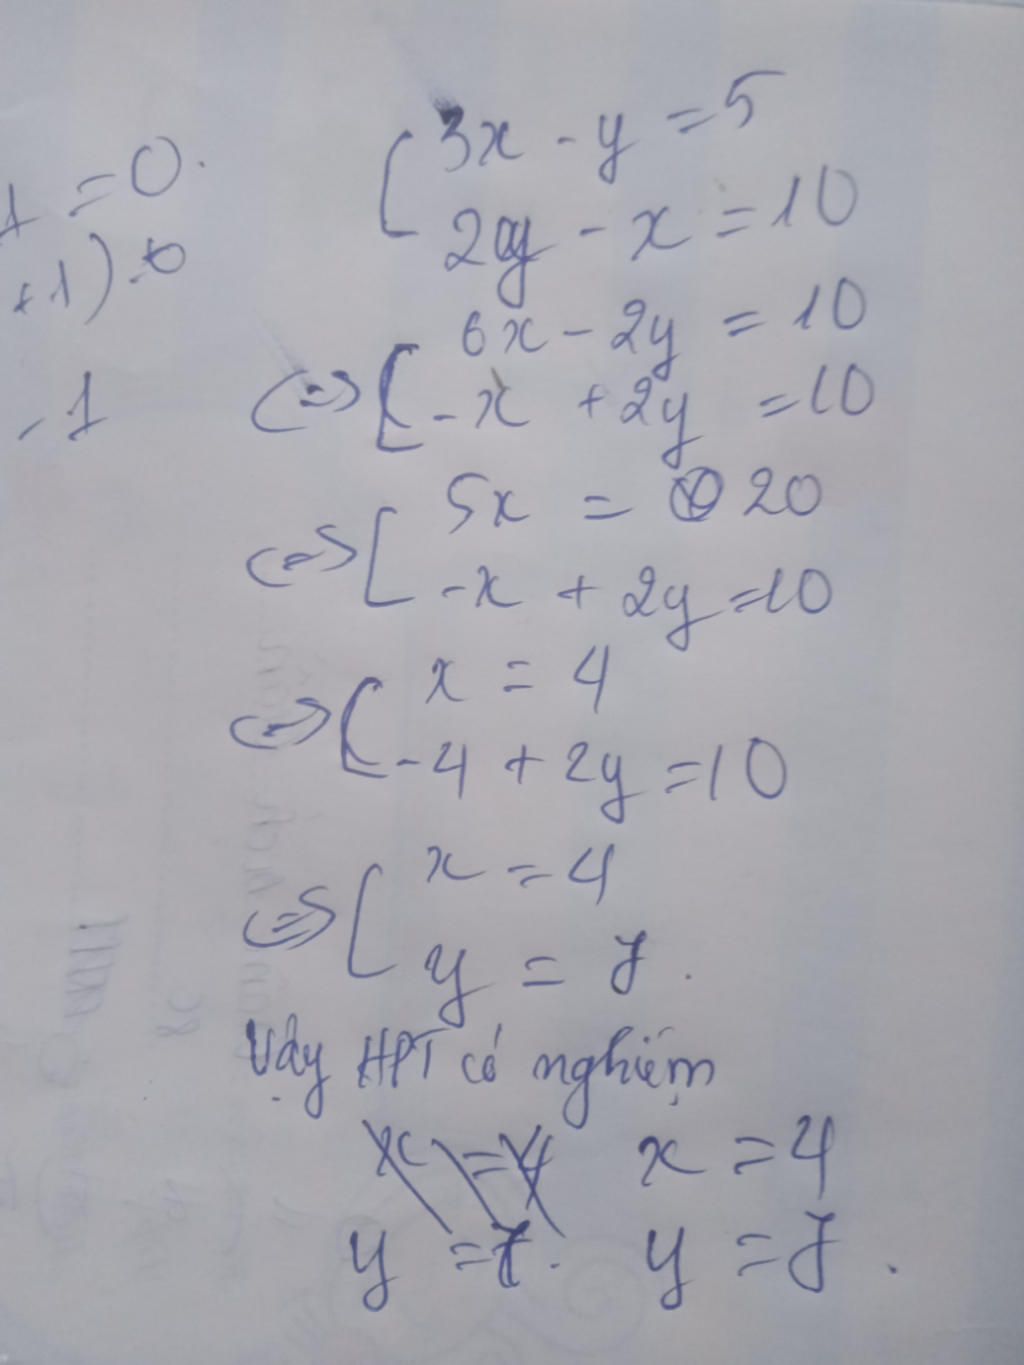 1 = 0.
+1).0
-1
3x - y = 5
2y - x = 10
6x - 2y = 10
⇔ -x + 2y = 10
5x = 20
⇔ -x + 2y = 10
x = 4
⇔ -4 + 2y = 10
x = 4
⇔ y = 7.
Vậy HPT có nghiệm
x = 4 x = 4
y = 7. y = 7.